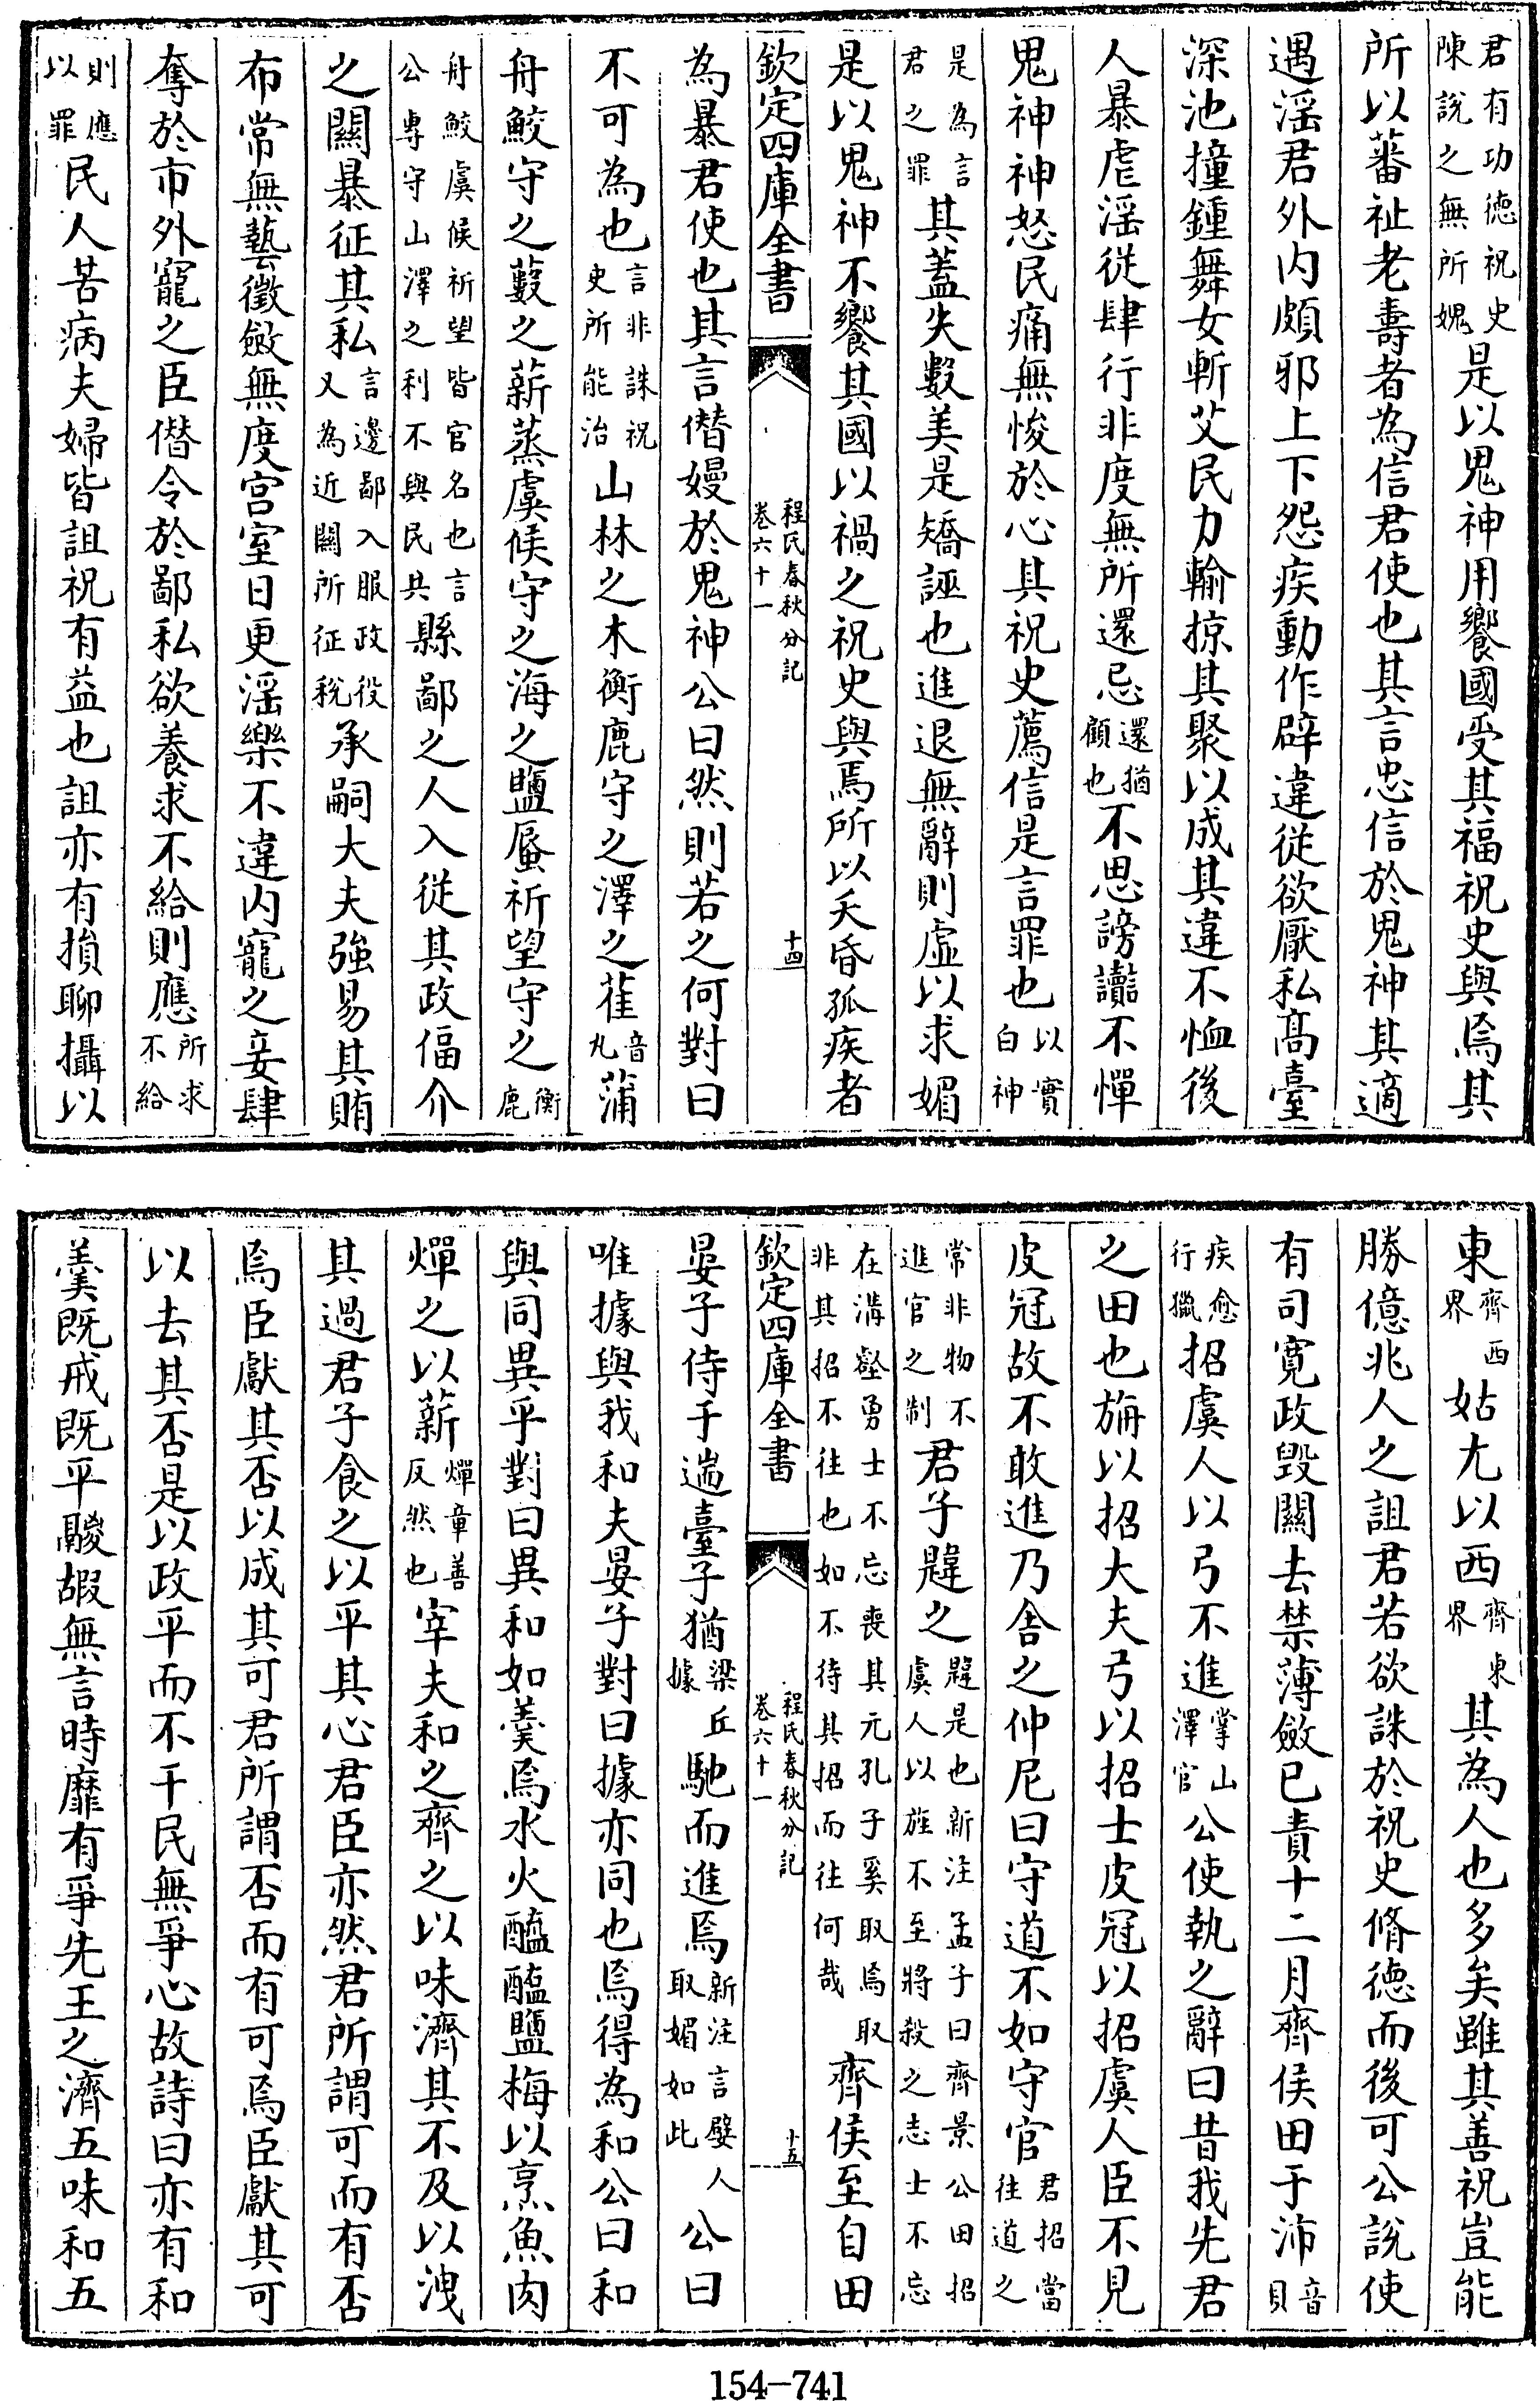 君有功德祝史陳說之無所媿是以鬼神用饗國受其福祝史與焉其
所以蕃祉老壽者為信君使也其言忠信於鬼神其適
遇淫君外内頗邪上下怨疾動作辟違從欲厭私髙臺
深池撞鍾舞女斬艾民力輸掠其聚以成其違不恤後
人暴虐淫從肆行非度無所還忌還猶顧也不思謗讟不憚
鬼神神怒民痛無悛於心其祝史薦信是言罪也以實白神
是為言君之罪其蓋失數美是矯誣也進退無辭則虚以求媚
是以鬼神不饗其國以禍之祝史與焉所以夭昏孤疾者
欽定四庫全書 程氏春秋分記卷六十一 十四
為暴君使也其言僭嫚於鬼神公曰然則若之何對曰
不可為也言非誅祝史所能治山林之木衡鹿守之澤之萑音丸蒲
舟鮫守之藪之薪蒸虞候守之海之鹽蜃祈望守之衡鹿
舟鮫虞候祈望皆官名也言公專守山澤之利不與民共縣鄙之人入從其政偪介
之關暴征其私言邊鄙入服政役又為近關所征稅承嗣大夫強易其賄
布常無藝徵斂無度宫室日更淫樂不違内寵之妾肆
奪於市外寵之臣僭令於鄙私欲養求不給則應所求不給
則應以罪民人苦病夫婦皆詛祝有益也詛亦有損聊攝以
東齊西界姑尢以西齊東界其為人也多矣雖其善祝豈能
勝億兆人之詛君若欲誅於祝史脩德而後可公說使
有司寛政毀關去禁薄斂已責十二月齊侯田于沛音貝
疾愈行獵招虞人以弓不進掌山澤官公使執之辭曰昔我先君
之田也旃以招大夫弓以招士皮冠以招虞人臣不見
皮冠故不敢進乃舍之仲尼曰守道不如守官君招當往道之
常非物不進官之制君子韙之韙是也新注孟子曰齊景公田招虞人以旌不至將殺之志士不忘
在溝壑勇士不忘喪其元孔子奚取焉取非其招不往也如不待其招而往何哉齊侯至自田
欽定四庫全書 程氏春秋分記卷六十一 十五
晏子侍于遄臺子猶梁丘據馳而進焉新注言嬖人取媚如此公曰
唯據與我和夫晏子對曰據亦同也焉得為和公曰和
與同異乎對曰異和如羹焉水火醯醢鹽梅以烹魚肉
燀之以薪燀章善反然也宰夫和之齊之以味濟其不及以洩
其過君子食之以平其心君臣亦然君所謂可而有否
焉臣獻其否以成其可君所謂否而有可焉臣獻其可
以去其否是以政平而不干民無爭心故詩曰亦有和
羹既戒既平鬷嘏無言時靡有爭先王之濟五味和五
154-741